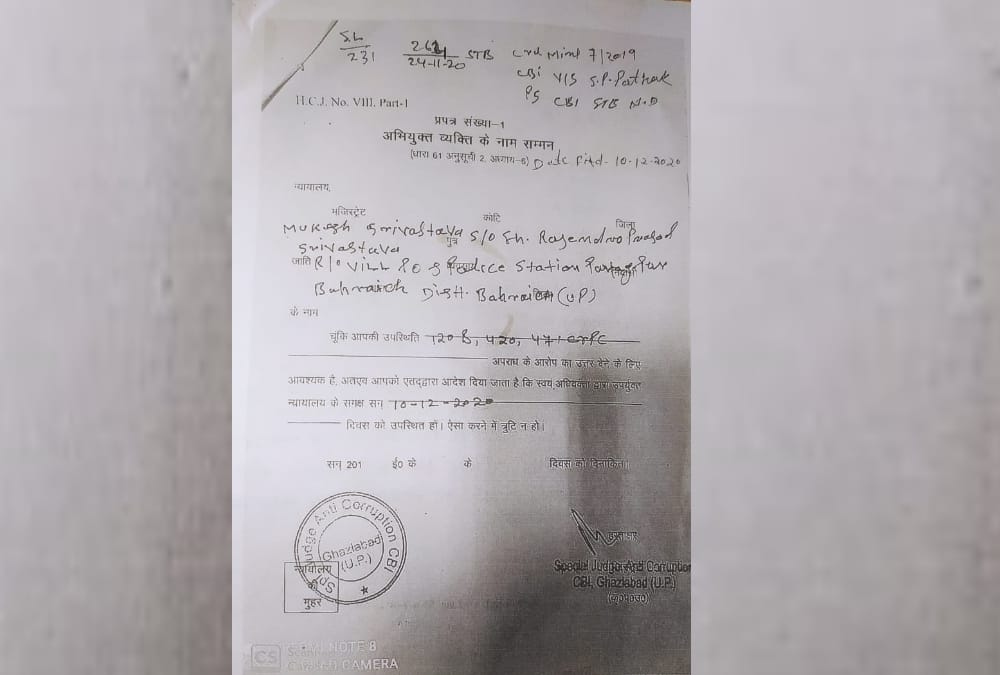 S.L
231
24-11-20 STB
7/2019
CBI V/S S.P. Pathak
PS CBI STB N.D
H.C.J. No. VIII. Part-I
प्रपत्र संख्या-1
अभियुक्त व्यक्ति के नाम सम्मन
(धारा 61 अनुसूची 2, अध्याय-6) Date 10-12-2020
न्यायालय,
मजिस्ट्रेट कोटि जिला
Mukesh Srivastava पुत्र S/o Sh. Rajendra Prasad
Srivastava
जाति R/o Vill PO & Police Station
Bahraich Distt. Bahraich (UP)
के नाम
चूंकि आपकी उपस्थिति 120B, 420, 471
अपराध के आरोप का उत्तर देने के लिए
आवश्यक है, अतएव आपको एतद्द्वारा आदेश दिया जाता है कि स्वयं/अधिवक्ता द्वारा उपर्युक्त
न्यायालय के समक्ष सन् 10-12-2020
दिवस को उपस्थित हों। ऐसा करने में त्रुटि न हो।
सन् 201 ई0 के के दिवस को दिनांकित।
Spl. Judge Anti Corruption CBI
Ghaziabad
(U.P.)
न्यायालय
की
मुहर
हस्ताक्षर
Special Judge, Anti Corruption
CBI, Ghaziabad (U.P.)
CS
REDMI NOTE 8
CAMERA